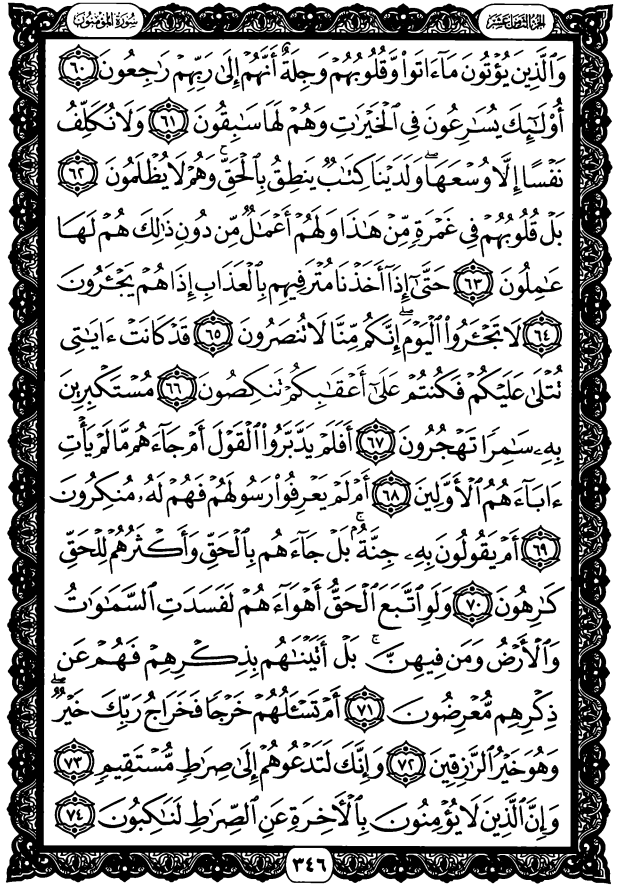 سُورَةُ المُؤْمِنُونَ الجُزْءُ الثَّامِنَ عَشَرَ
وَالَّذِينَ يُؤْتُونَ مَا ءَاتَوا۟ وَّقُلُوبُهُمْ وَجِلَةٌ أَنَّهُمْ إِلَىٰ رَبِّهِمْ رَٰجِعُونَ ٦٠
أُو۟لَٰٓئِكَ يُسَٰرِعُونَ فِى ٱلْخَيْرَٰتِ وَهُمْ لَهَا سَٰبِقُونَ ٦١ وَلَا نُكَلِّفُ
نَفْسًا إِلَّا وُسْعَهَاۖ وَلَدَيْنَا كِتَٰبٌ يَنطِقُ بِٱلْحَقِّۚ وَهُمْ لَا يُظْلَمُونَ ٦٢
بَلْ قُلُوبُهُمْ فِى غَمْرَةٍ مِّنْ هَٰذَا وَلَهُمْ أَعْمَٰلٌ مِّن دُونِ ذَٰلِكَ هُمْ لَهَا
عَٰمِلُونَ ٦٣ حَتَّىٰٓ إِذَآ أَخَذْنَا مُتْرَفِيهِم بِٱلْعَذَابِ إِذَا هُمْ يَجْـَٔرُونَ
٦٤ لَا تَجْـَٔرُوا۟ ٱلْيَوْمَۖ إِنَّكُم مِّنَّا لَا تُنصَرُونَ ٦٥ قَدْ كَانَتْ ءَايَٰتِى
تُتْلَىٰ عَلَيْكُمْ فَكُنتُمْ عَلَىٰٓ أَعْقَٰبِكُمْ تَنكِصُونَ ٦٦ مُسْتَكْبِرِينَ
بِهِۦ سَٰمِرًا تَهْجُرُونَ ٦٧ أَفَلَمْ يَدَّبَّرُوا۟ ٱلْقَوْلَ أَمْ جَآءَهُم مَّا لَمْ يَأْتِ
ءَابَآءَهُمُ ٱلْأَوَّلِينَ ٦٨ أَمْ لَمْ يَعْرِفُوا۟ رَسُولَهُمْ فَهُمْ لَهُۥ مُنكِرُونَ
٦٩ أَمْ يَقُولُونَ بِهِۦ جِنَّةٌۢۚ بَلْ جَآءَهُم بِٱلْحَقِّ وَأَكْثَرُهُمْ لِلْحَقِّ
كَٰرِهُونَ ٧٠ وَلَوِ ٱتَّبَعَ ٱلْحَقُّ أَهْوَآءَهُمْ لَفَسَدَتِ ٱلسَّمَٰوَٰتُ
وَٱلْأَرْضُ وَمَن فِيهِنَّۚ بَلْ أَتَيْنَٰهُم بِذِكْرِهِمْ فَهُمْ عَن
ذِكْرِهِم مُّعْرِضُونَ ٧١ أَمْ تَسْـَٔلُهُمْ خَرْجًا فَخَرَاجُ رَبِّكَ خَيْرٌۖ
وَهُوَ خَيْرُ ٱلرَّٰزِقِينَ ٧٢ وَإِنَّكَ لَتَدْعُوهُمْ إِلَىٰ صِرَٰطٍ مُّسْتَقِيمٍ ٧٣
وَإِنَّ ٱلَّذِينَ لَا يُؤْمِنُونَ بِٱلْءَاخِرَةِ عَنِ ٱلصِّرَٰطِ لَنَٰكِبُونَ ٧٤
٣٤٦